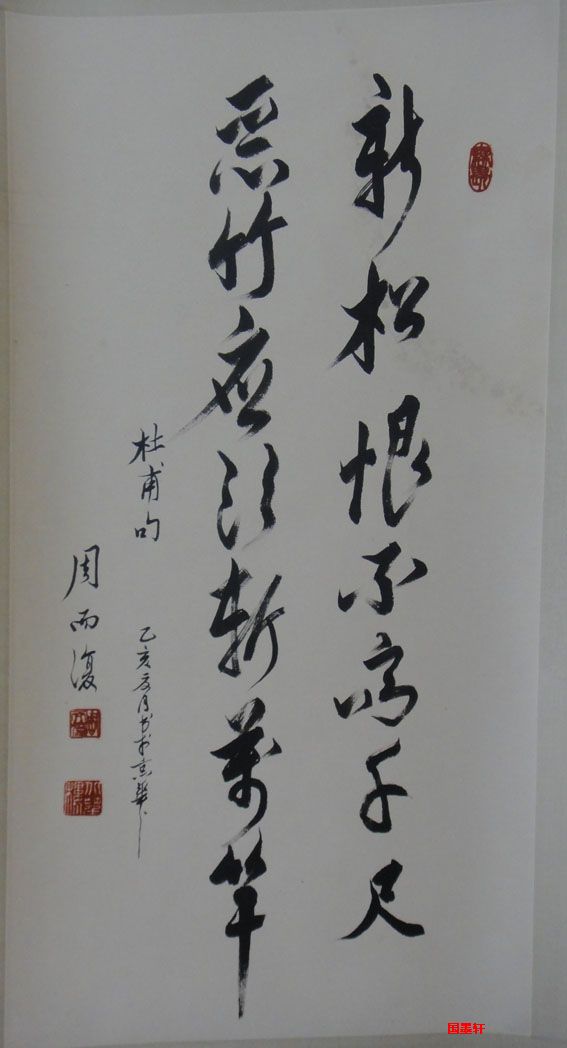 新松恨不高千尺
恶竹应须斩萬竿
杜甫句
乙亥辰月书于京华
周而復
国墨轩